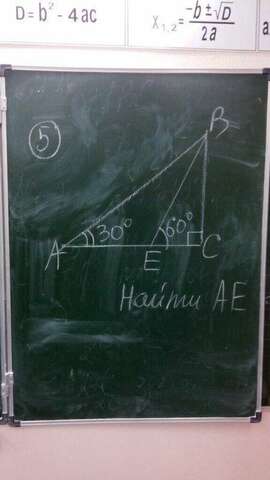 D=b² - 4ac
x₁,₂=(-b±√D)/2a
a
5
B
30°
60°
A
E
C
Найти AE